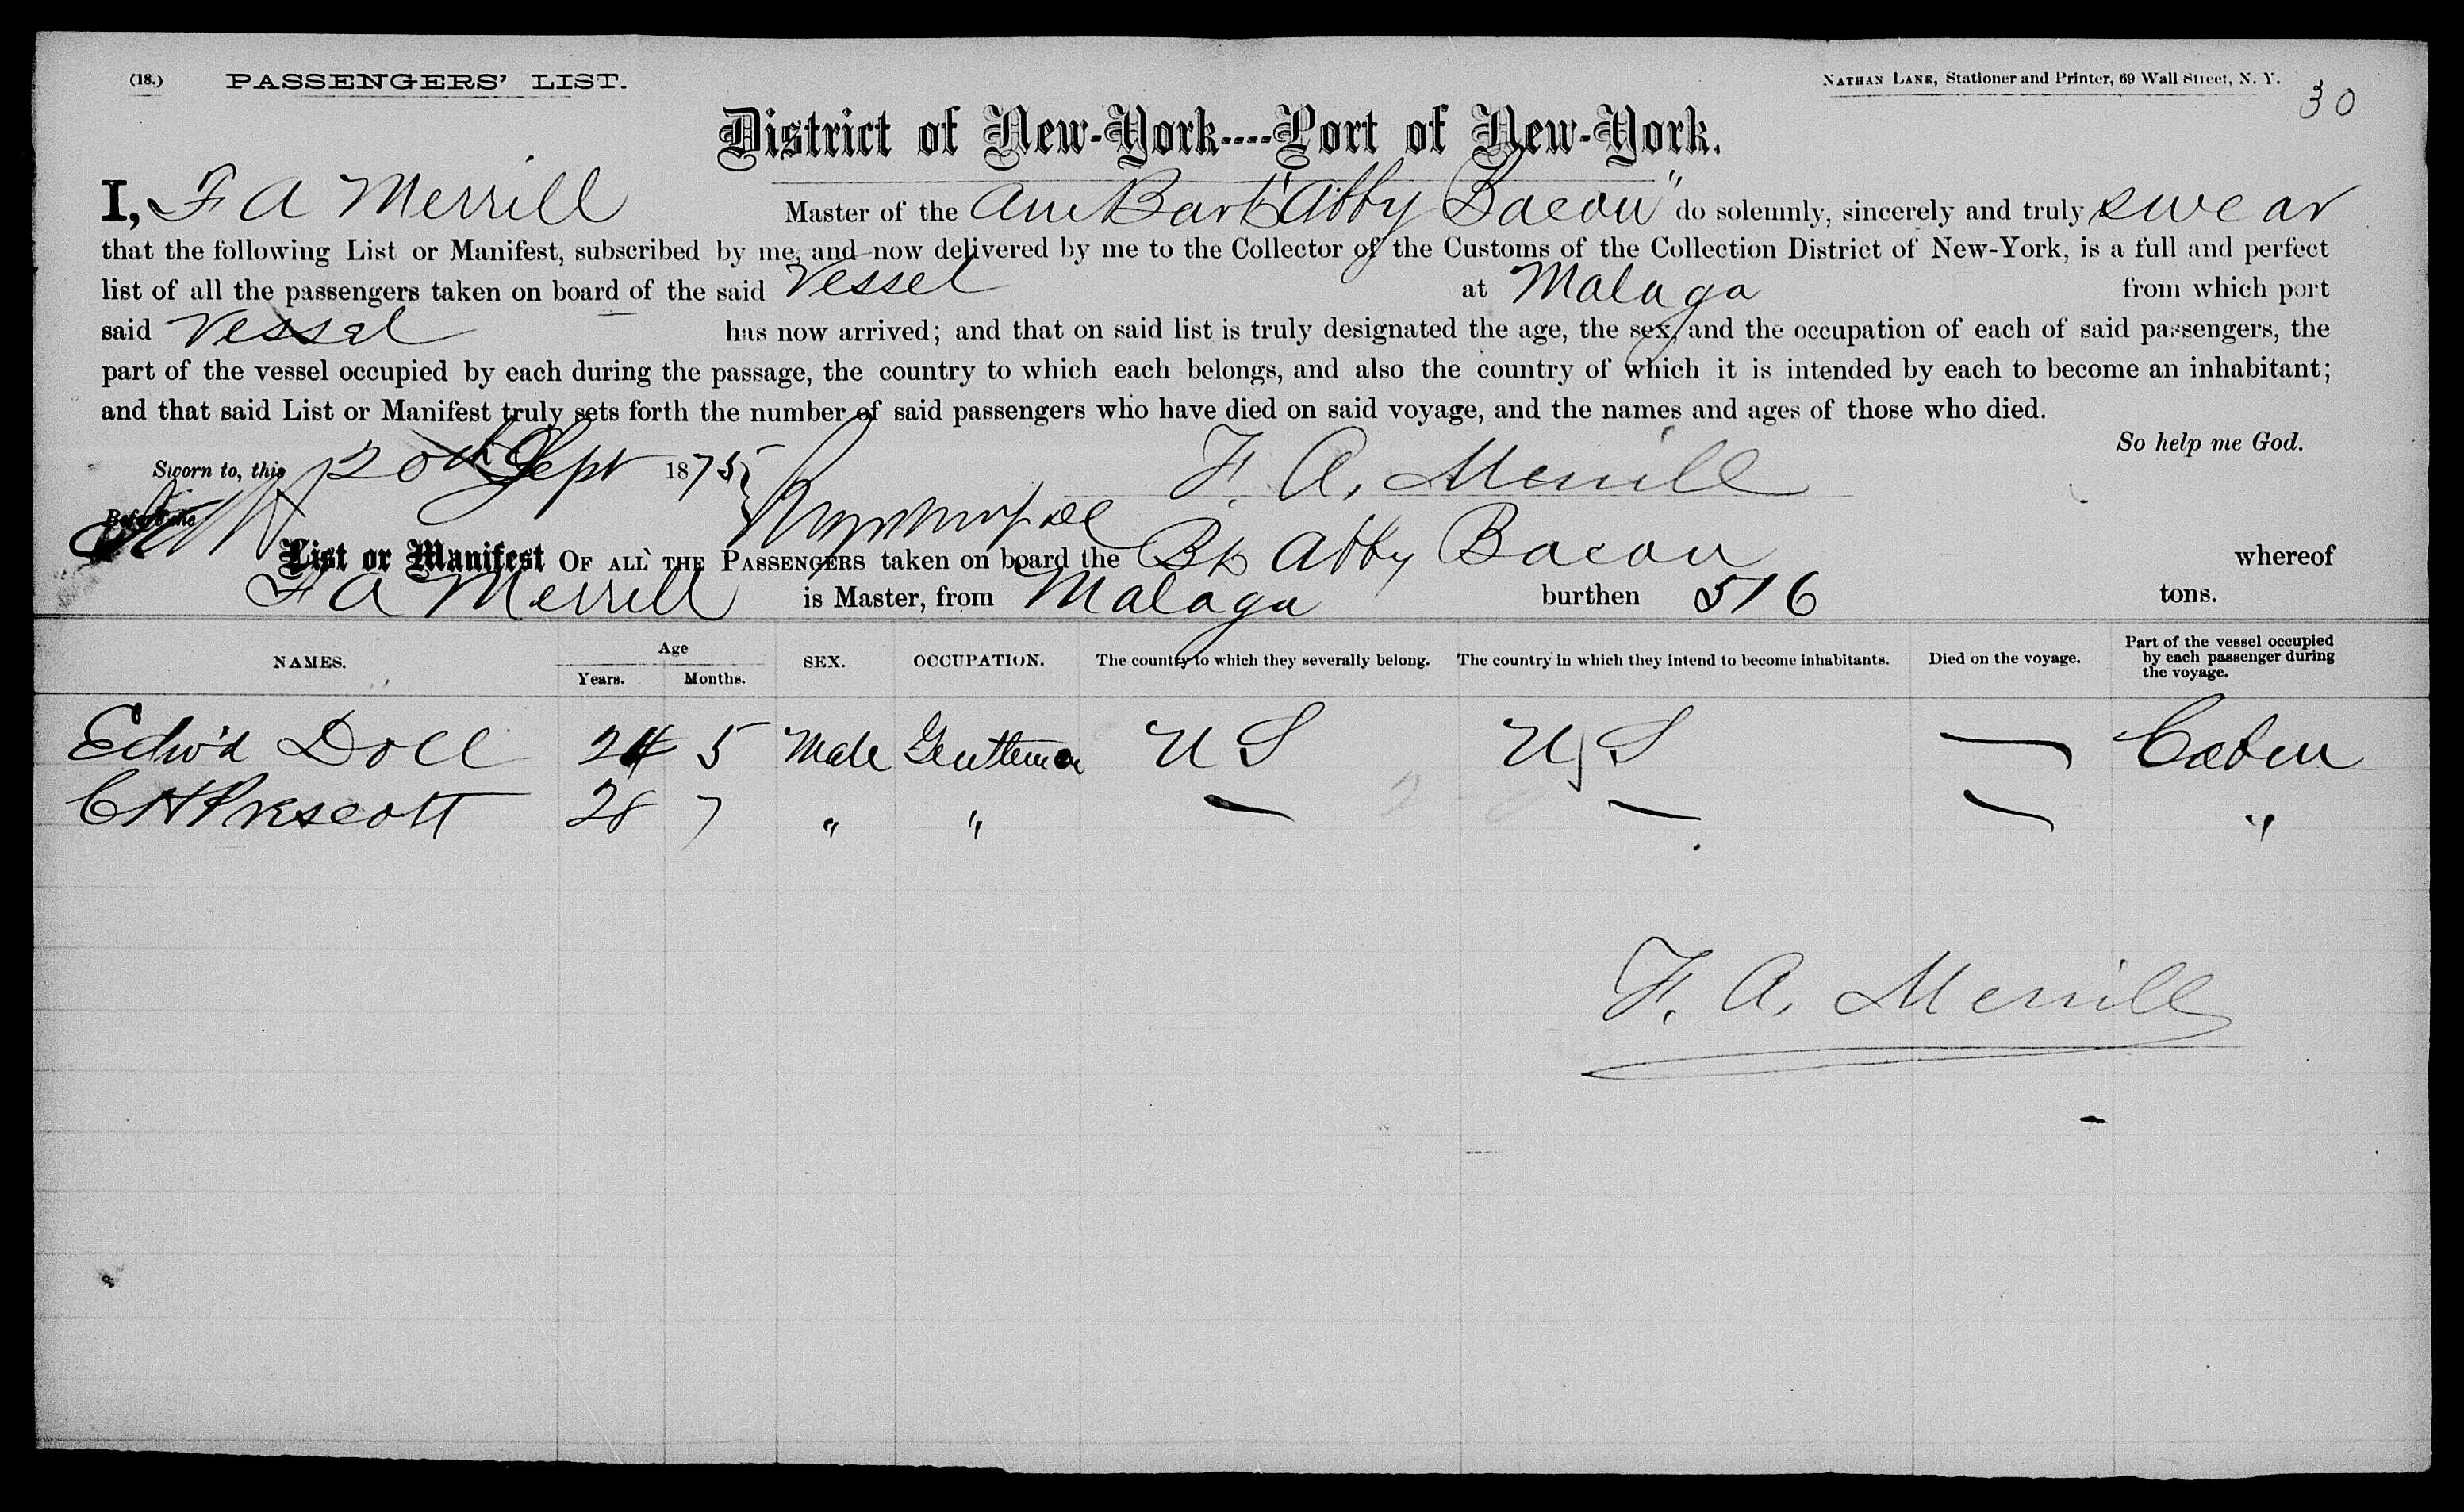 (18.) PASSENGERS' LIST. NATHAN LANE, Stationer and Printer, 69 Wall Street, N. Y.
30
District of New-York----Port of New-York.
I, F A Merrill Master of the Am Bark "Abby Bacon" do solemnly, sincerely and truly swear
that the following List or Manifest, subscribed by me, and now delivered by me to the Collector of the Customs of the Collection District of New-York, is a full and perfect
list of all the passengers taken on board of the said Vessel at Malaga from which port
said Vessel has now arrived; and that on said list is truly designated the age, the sex, and the occupation of each of said passengers, the
part of the vessel occupied by each during the passage, the country to which each belongs, and also the country of which it is intended by each to become an inhabitant;
and that said List or Manifest truly sets forth the number of said passengers who have died on said voyage, and the names and ages of those who died.
So help me God.
Sworn to, this 20th Sept 1875 F. A. Merrill
Before me
List or Manifest OF ALL THE PASSENGERS taken on board the Bk Abby Bacon whereof
F A Merrill is Master, from Malaga burthen 516 tons.
NAMES. Age Years. Months. SEX. OCCUPATION. The country to which they severally belong. The country in which they intend to become inhabitants. Died on the voyage. Part of the vessel occupied by each passenger during the voyage.
Edw'd Doll 24 5 Male Gentleman U S U S — Cabin
C H Prescott 28 7 " " — — — "
F. A. Merrill